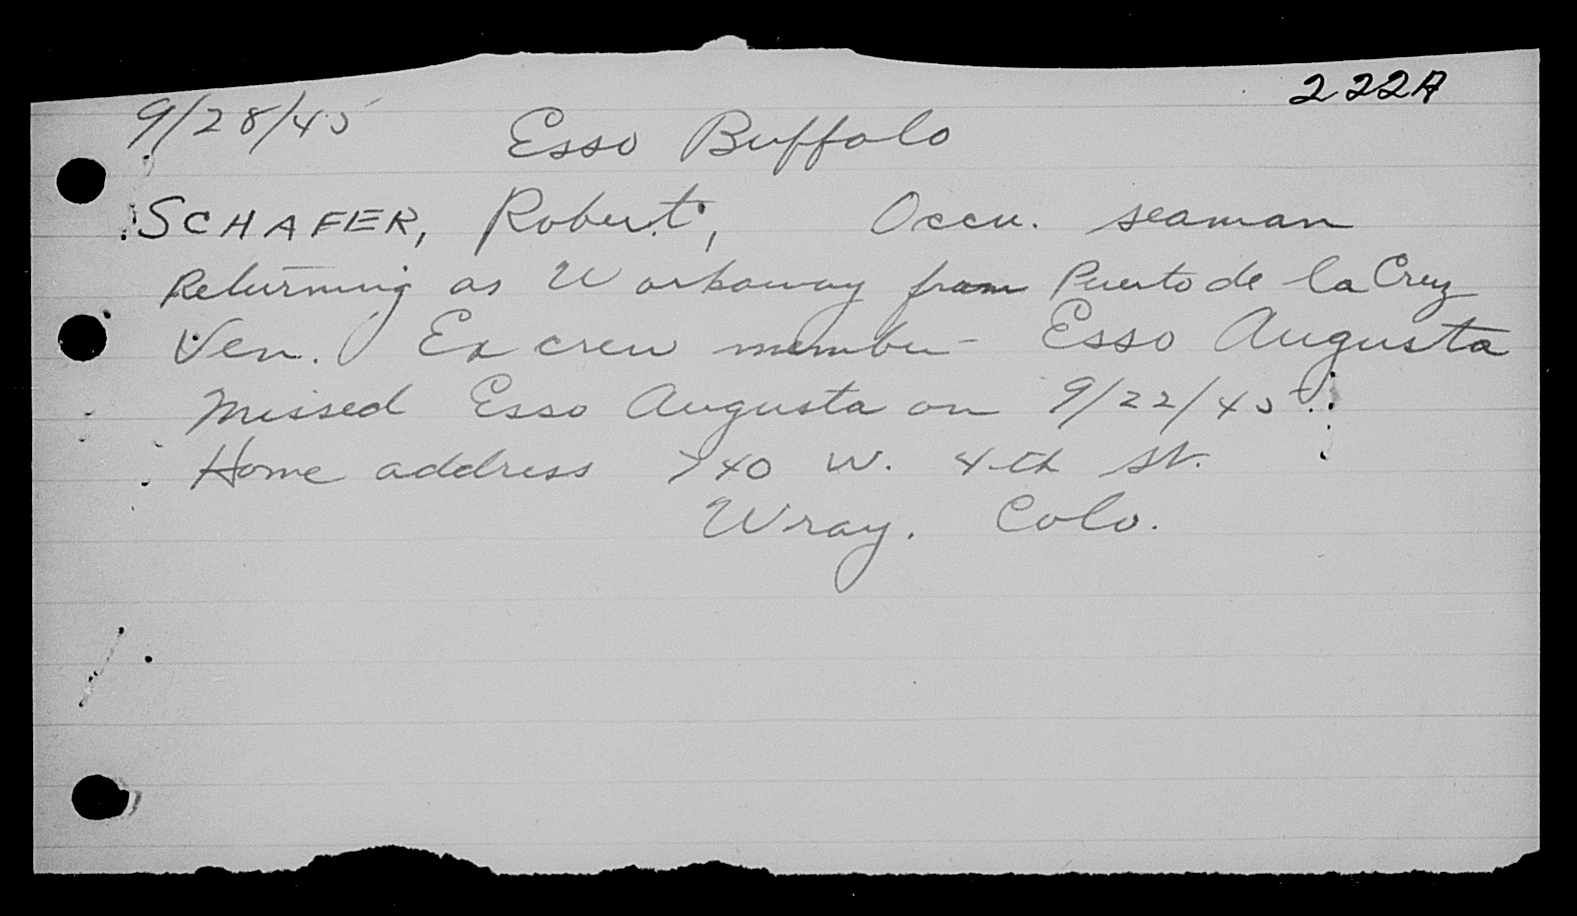 222A
9/28/45 Esso Buffalo
SCHAFER, Robert, Occu. seaman
Returning as Workaway from Puerto de la Cruz
Ven. Ex crew member - Esso Augusta
Missed Esso Augusta on 9/22/45.
Home address 740 W. 4th St.
Wray. Colo.